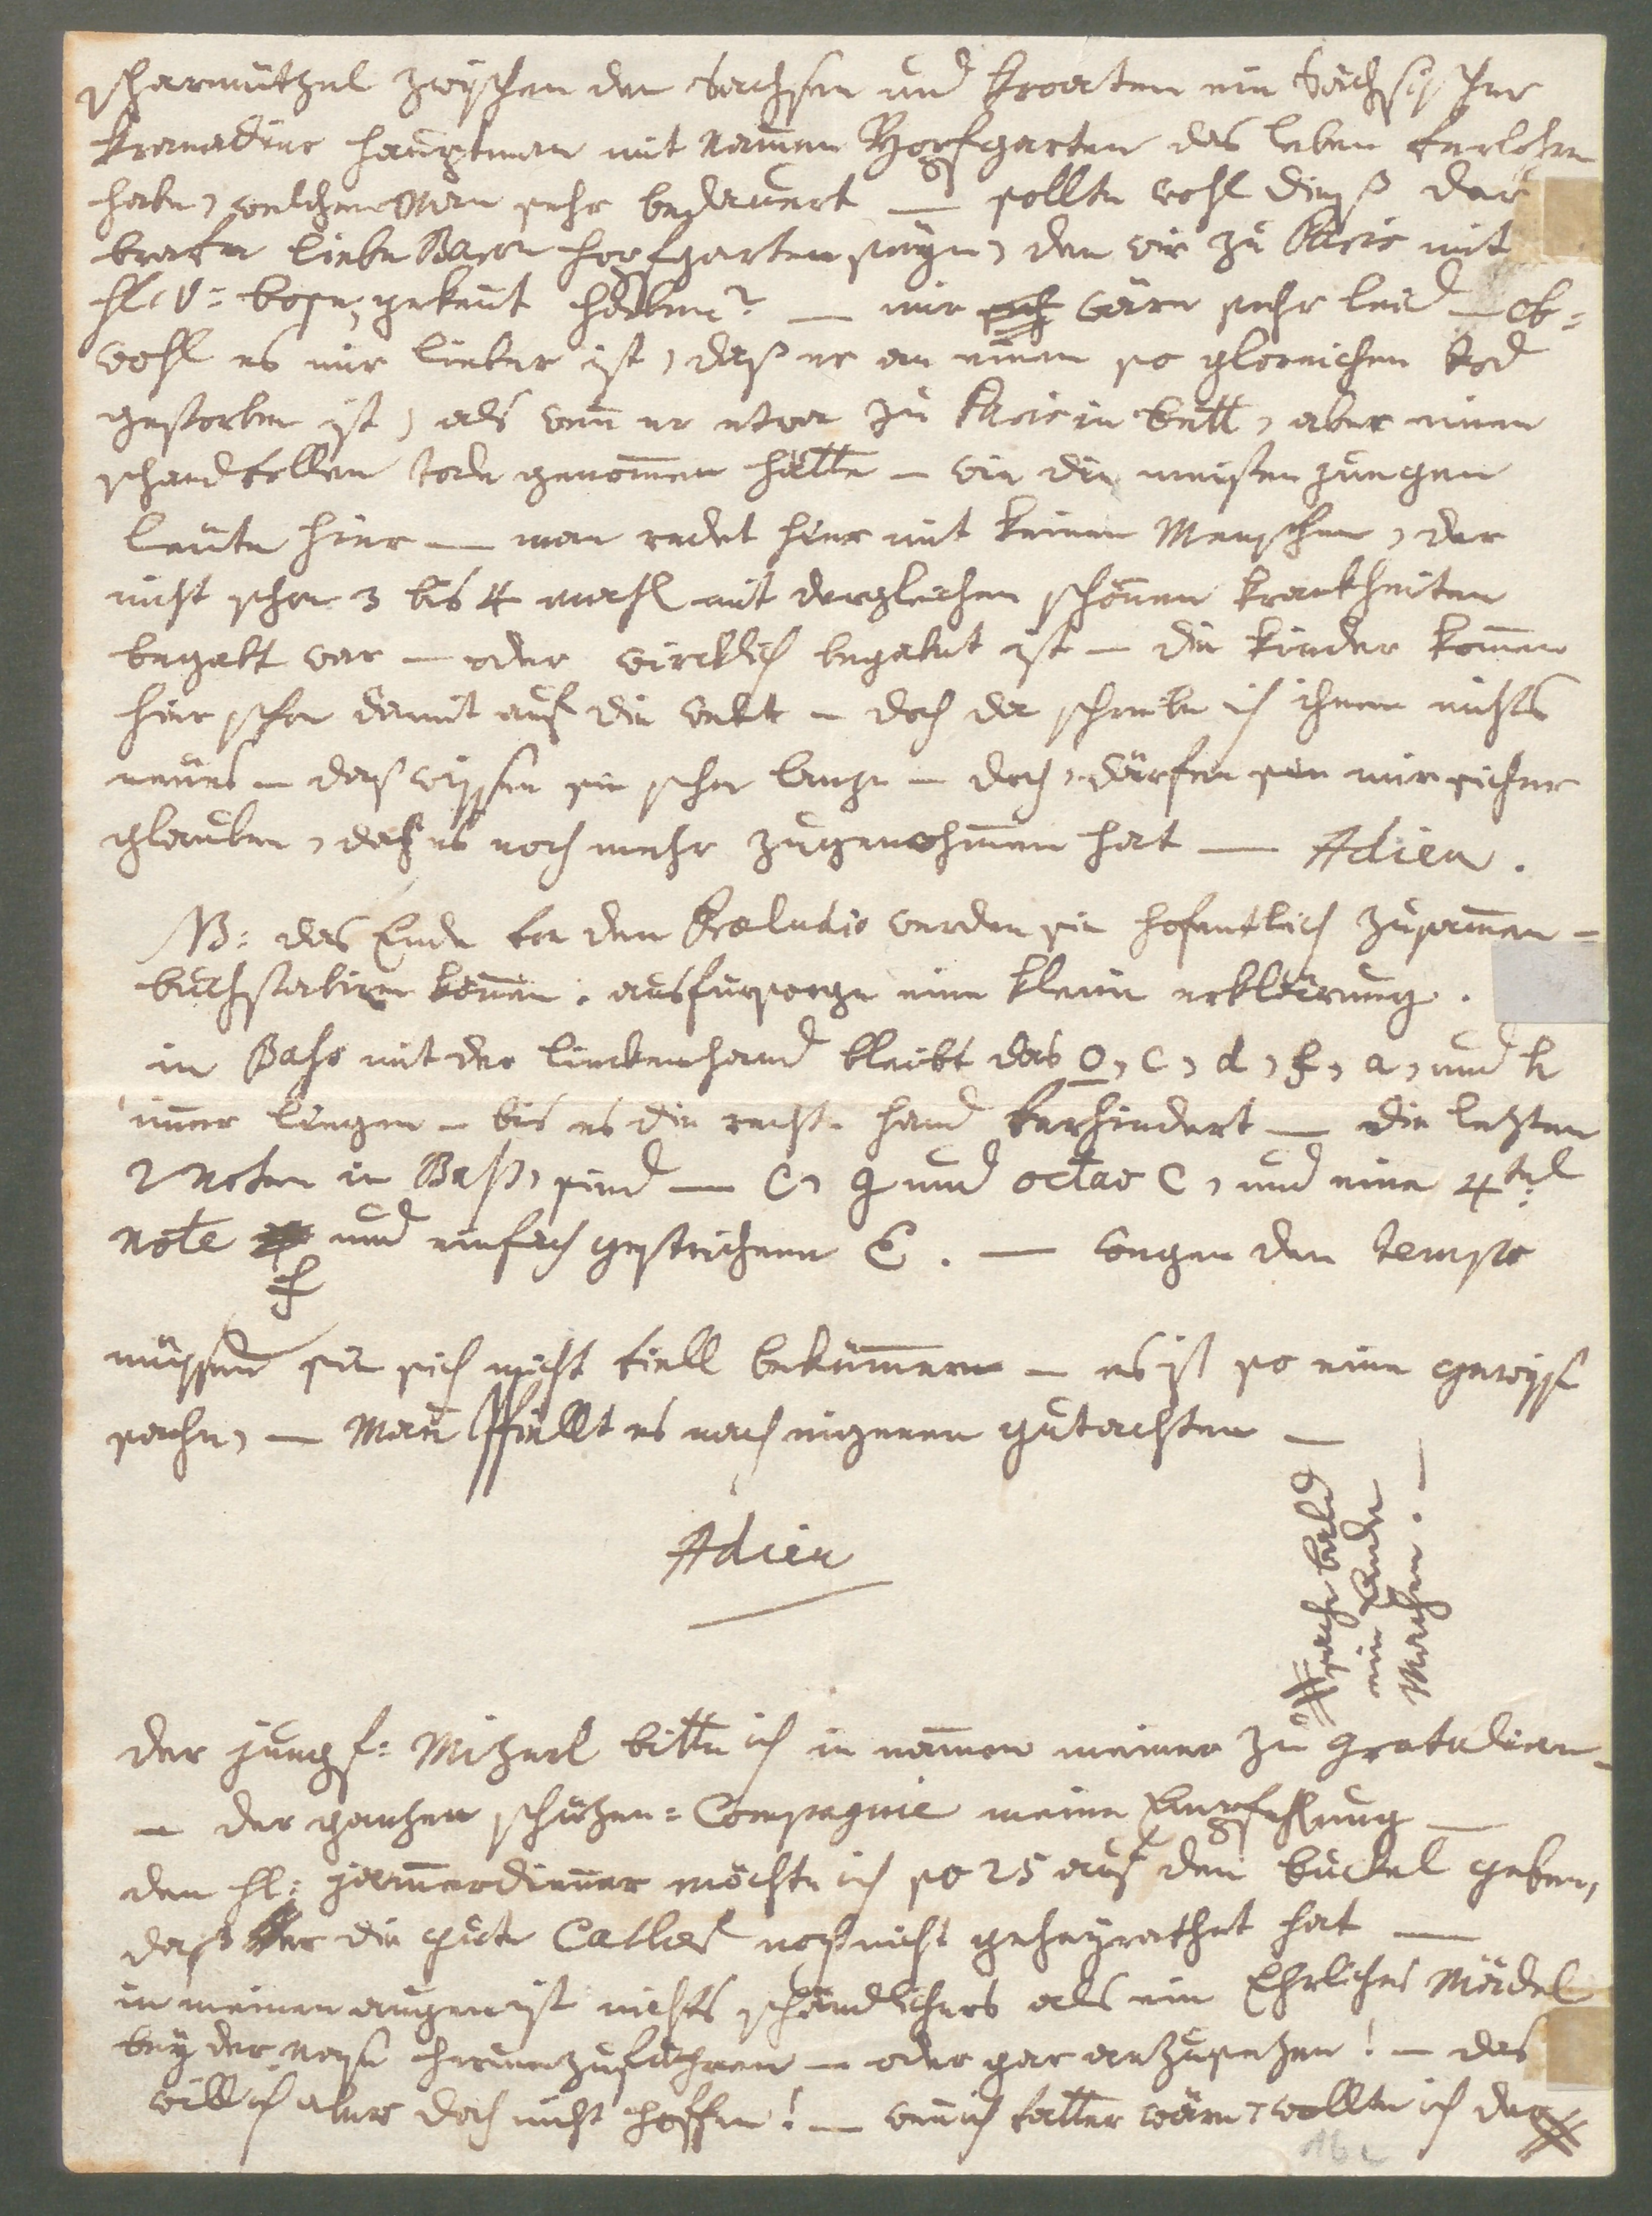 scharmützel zwischen den Sachsen und kroaten ein Sächsischer
kranadier hauptman mit nammen Hopfgarten das leben verlohren
habe, welchen Man sehr bedauert — sollte wohl dieß der
brafe liebe Baron hopfgarten seyn, den wir zu Paris mit
H: v: bose, gekennt haben? — mir wäre sehr leid — ob=
wohl es mir lieber ist, daß er an einen so gloreichen tod
gestorben ist, als wenn er etwa zu Paris in bett, aber einen
schandfollen tode genommen hätte — wie die meisten jungen
leute hier — man redet hier mit keinen Menschen, der
nicht schon 3 bis 4 mahl mit dergleichen schönnen krankheiten
begabt war — oder wircklich begabt ist — die kinder kommen
hier schon damit auf die welt — doch da schreibe ich ihnen nichts
neües — daß wissen sie schon lange — doch därfen sie mir sicher
glauben, daß es noch mehr zugenohmen hat — Adieu.
NB: das Ende von den Præludio werden sie hofentlich zusammen=
buchstabiren können. aus fursorge eine kleine erklärung.
in Bass mit der linckenhand bleibt das c, d, f, a, und h
immer liegen — bis es die rechte hand verhindert — die lezten
2 Noten in Bass, sind — C, g und octav C, und eine 4tel
note und einfach gestrichene C. — wegen den tempo
müssen sie sich nicht viell bekümmern — es ist so eine gewisse
sache, — Man spiellt es nach eigenen gutachten —
Adieu
der jungf: Mitzerl bitte ich in nammen meiner zu gratulieren
— der ganzen schützen=Compagnie meine Empfehlung —
den H: jammerdienner möchte ich so 25 auf den buckel geben,
daß er die gute Catherl noch nicht geheyrathet hat —
in meinen augen ist nichts schändlichers als ein Ehrliches Mädel
bey der nase herumzuführen — oder gar anzusezen! — das
will ich aber doch nicht hoffen! — wenn ich vatter wäre, wollte ich der
sache bald
ein Ende
Machen. —
16